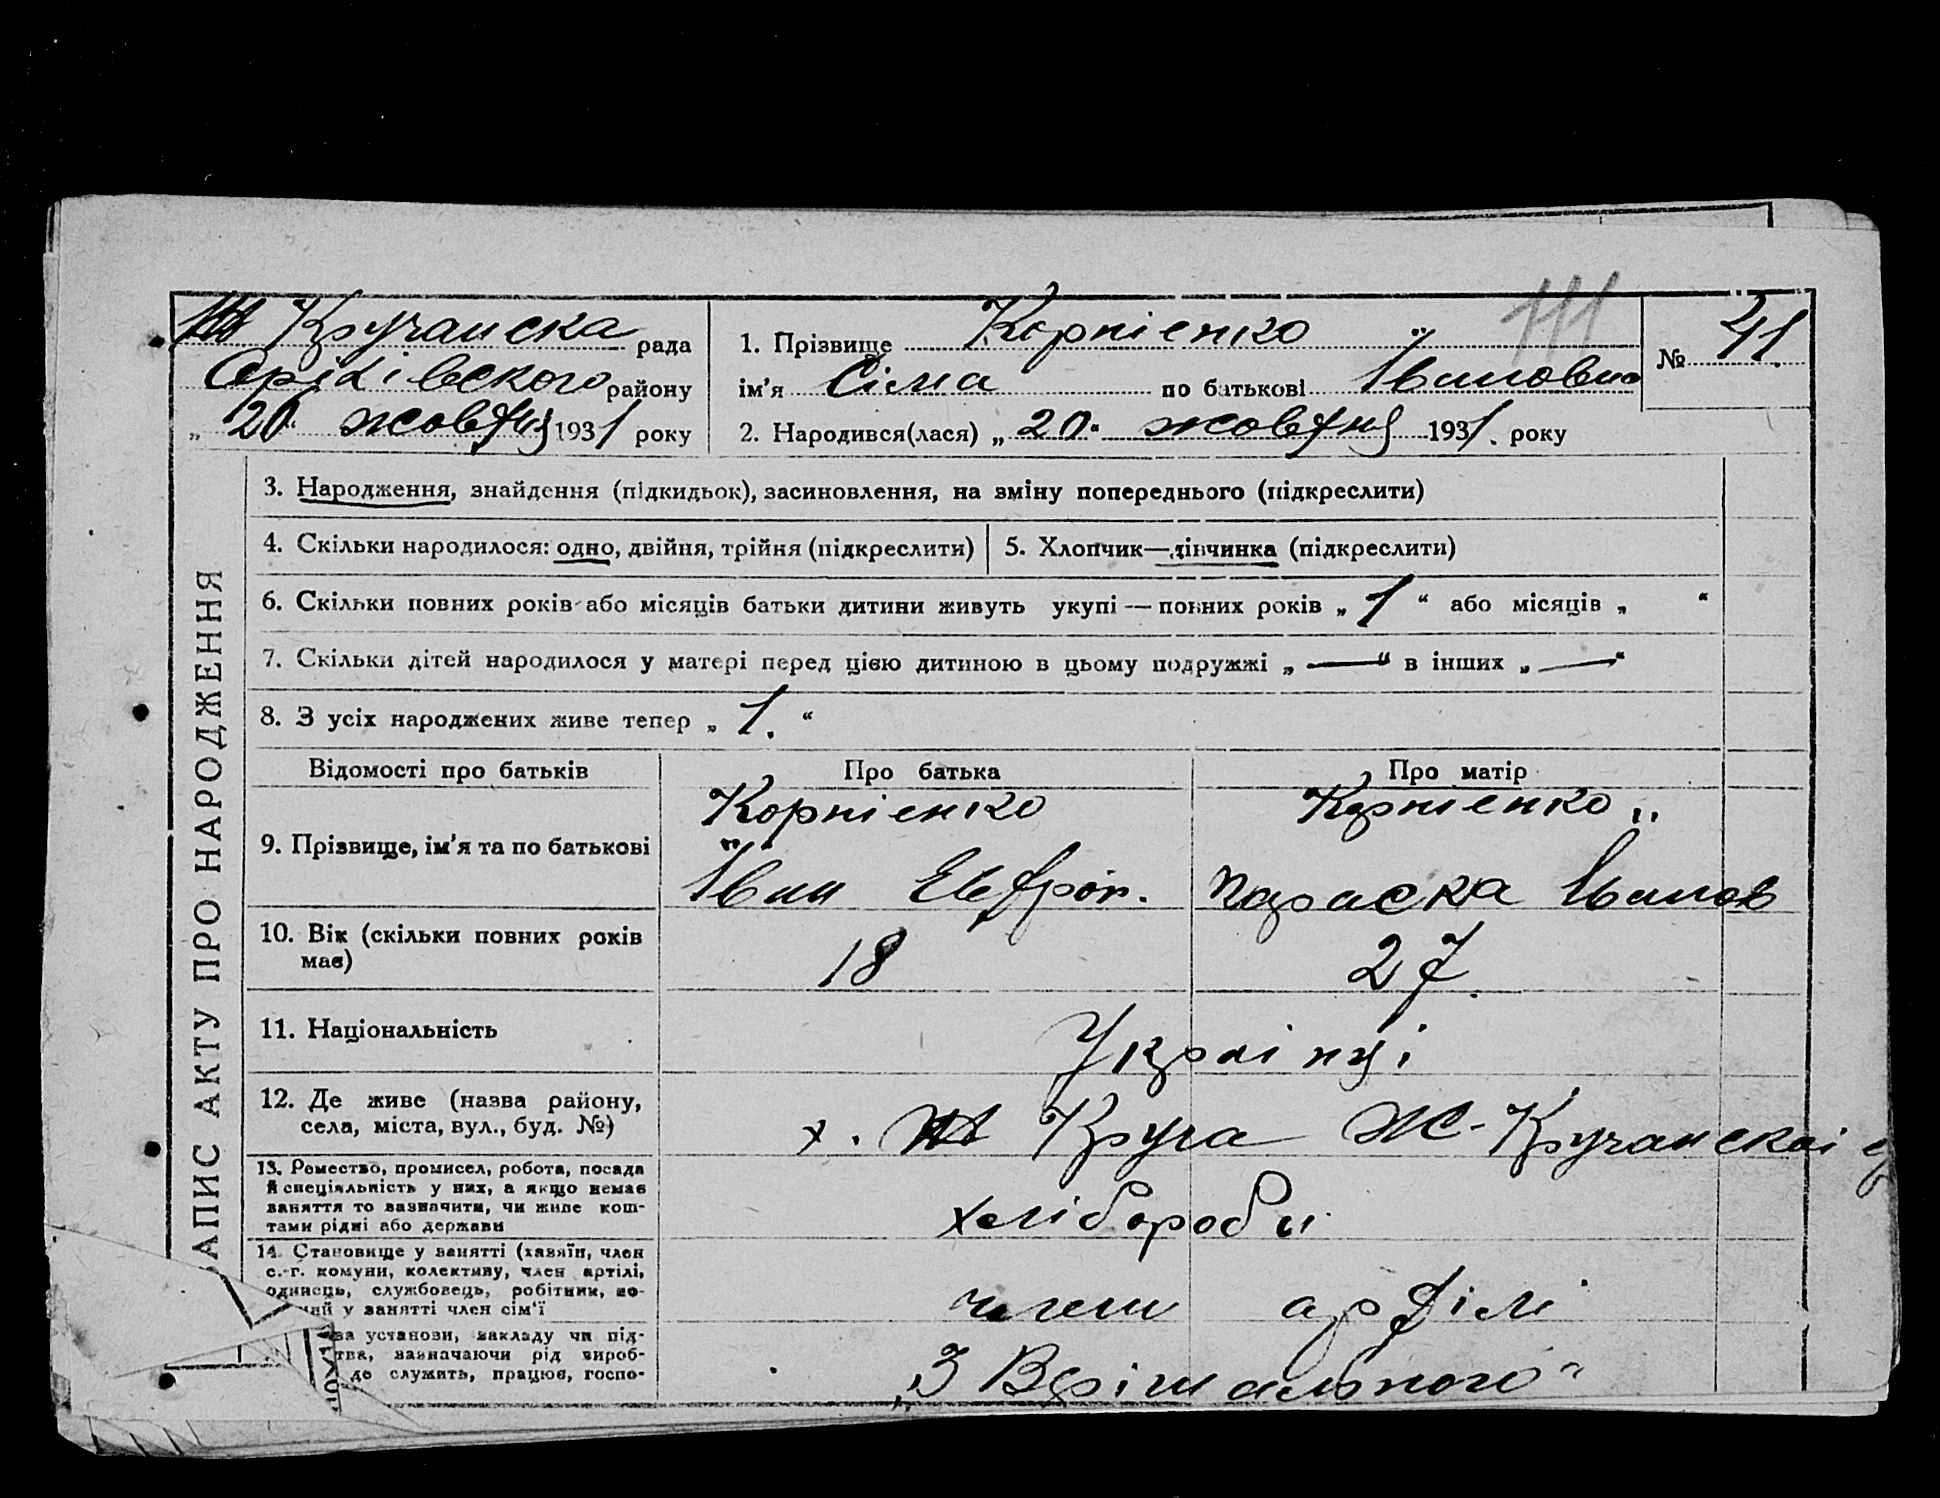 Кручанска рада
Оріхівского району
„ 20 “ жовтня 1931 року
111
1. Прізвище Корнієнко
ім'я Сіма по батькові Івановна
2. Народився(лася) „ 20 “ жовтня 1931. року
№ 41.
ЗАПИС АКТУ ПРО НАРОДЖЕННЯ
3. Народження, знайдення (підкидьок), засиновлення, на зміну попереднього (підкреслити)
4. Скільки народилося: одно, двійня, трійня (підкреслити)
5. Хлопчик—дівчинка (підкреслити)
6. Скільки повних років або місяців батьки дитини живуть укупі — повних років „ 1 “ або місяців „ “
7. Скільки дітей народилося у матері перед цією дитиною в цьому подружжі „ — “ в інших „ — “
8. З усіх народжених живе тепер „ 1. “
Відомості про батьків
Про батька
Про матір
9. Прізвище, ім'я та по батькові
Корнієнко
Іван Евтроп.
Корнієнко
Параска Іванов
10. Вік (скільки повних років
має)
18
27.
11. Національність
Украінці
12. Де живе (назва району,
села, міста, вул., буд. №)
х. Круча Ж-Кручанскоі
13. Ремество, промисел, робота, посада
й спеціяльність у них, а якщо немає
заняття то зазначити, чи живе кош-
тами рідні або держави
хлібороби
14. Становище у занятті (хазяїн, член
с.-г. комуни, колективу, член артілі,
одинець, службовець, робітник, по-
у занятті член сім'ї
член артілі
установи, закладу чи під-
зазначаючи рід вироб-
де служить, працює, госпо-
„З Вірішального“